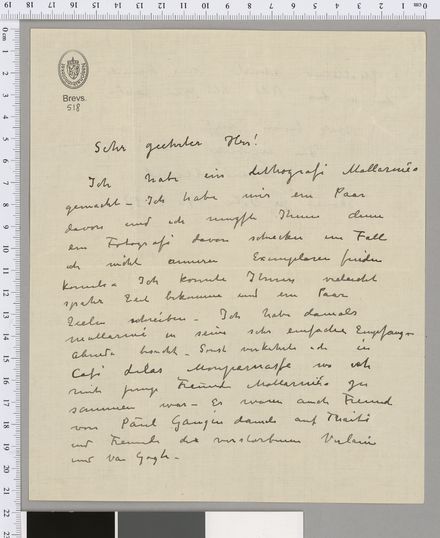 Brevs.
518
Sehr geehrter Herr!
Ich habe ein Lithografi Mallarmés
gemacht – Ich habe nur ein Paar
davon und ich müsste Ihnen dann
ein Fotografi davon schicken im Fall
ich nicht anderen Exemplaren finden
konnte. Ich konnte Ihnen vieleicht
später Zeit bekomme und ein Paar
Zeilen schreiben – Ich habe damals
Mallarmé in seine sehr einfachen Empfangs-
abende – Sonst verkehrte ich in
Café de Lilas wo ich
mit junge Freunde Mallarmés zu
sammen war – Es waren auch Freund
von Paul Gaugin damals auf Thaiti
und Freunde des verstorbenen Verlain
und Van Gogh –